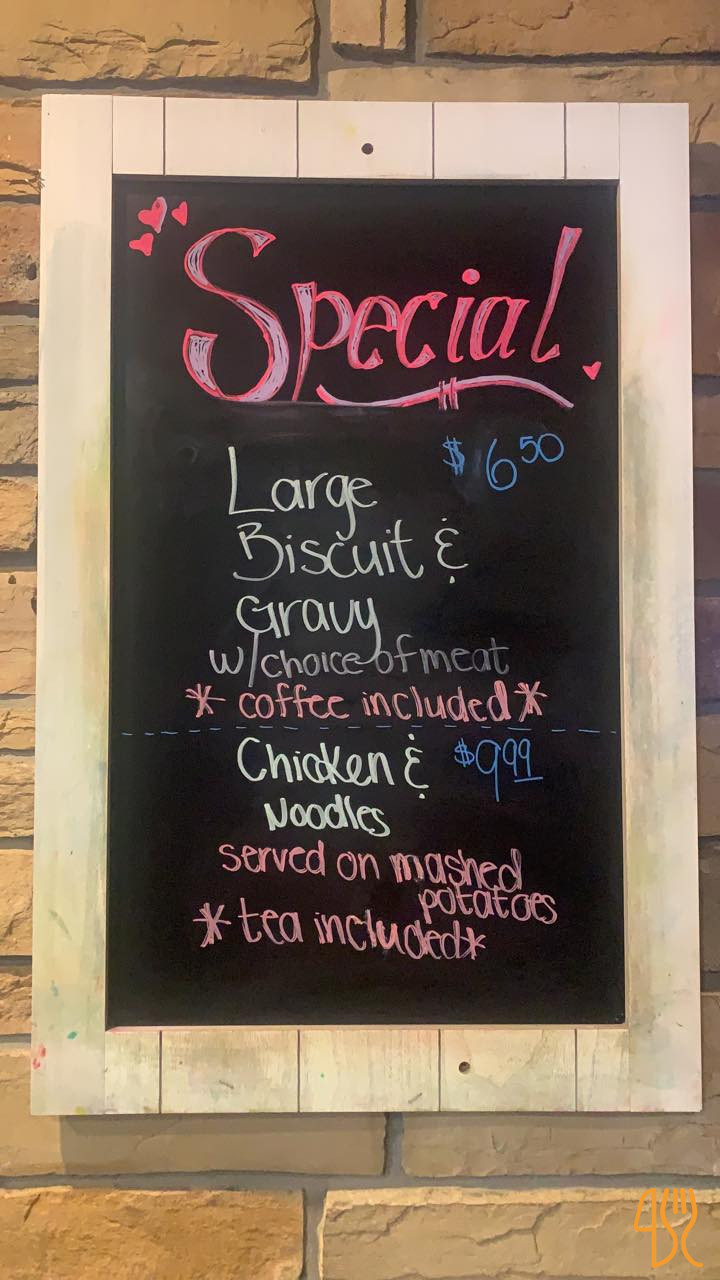 Special
$6.50
Large
Biscuit &
Gravy
w/choice of meat
* coffee included *
Chicken & $9.99
Noodles
served on mashed
potatoes
* tea included *